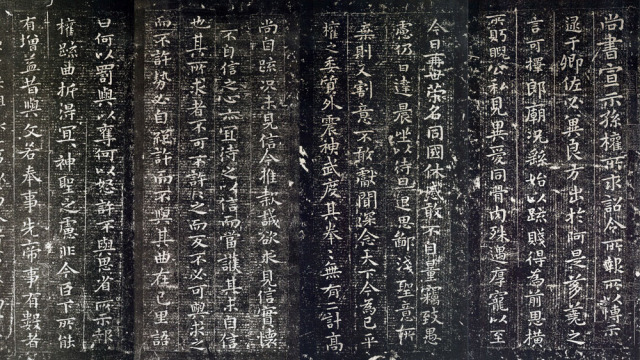 尚書宣示孫權所求詔令所報所以博示
逮于卿佐必冀良方出於阿是芻蕘之
言可擇郎廟況繇始以疏賤得為前恩橫
所盼睨公私見異愛同骨肉殊遇厚寵以至
今日再世榮名同國休慼敢不自量竊致愚
慮仍日達晨坐以待旦退思鄙淺聖意所
棄則又割意不敢獻聞深念天下今為已平
權之委質外震神武度其拳〻無有二計高
尚自疏況未見信今推款誠欲求見信實懷
不自信之心亦宜待之以信而當護其未自信
也其所求者不可不許許之而反不必可與求之
而不許勢必自絕許而不與其曲在己里語
曰何以罰與以奪何以怒許不與思省所示報
權疏曲折得宜神聖之慮非今臣下所能
有增益昔與文若奉事先帝事有數者